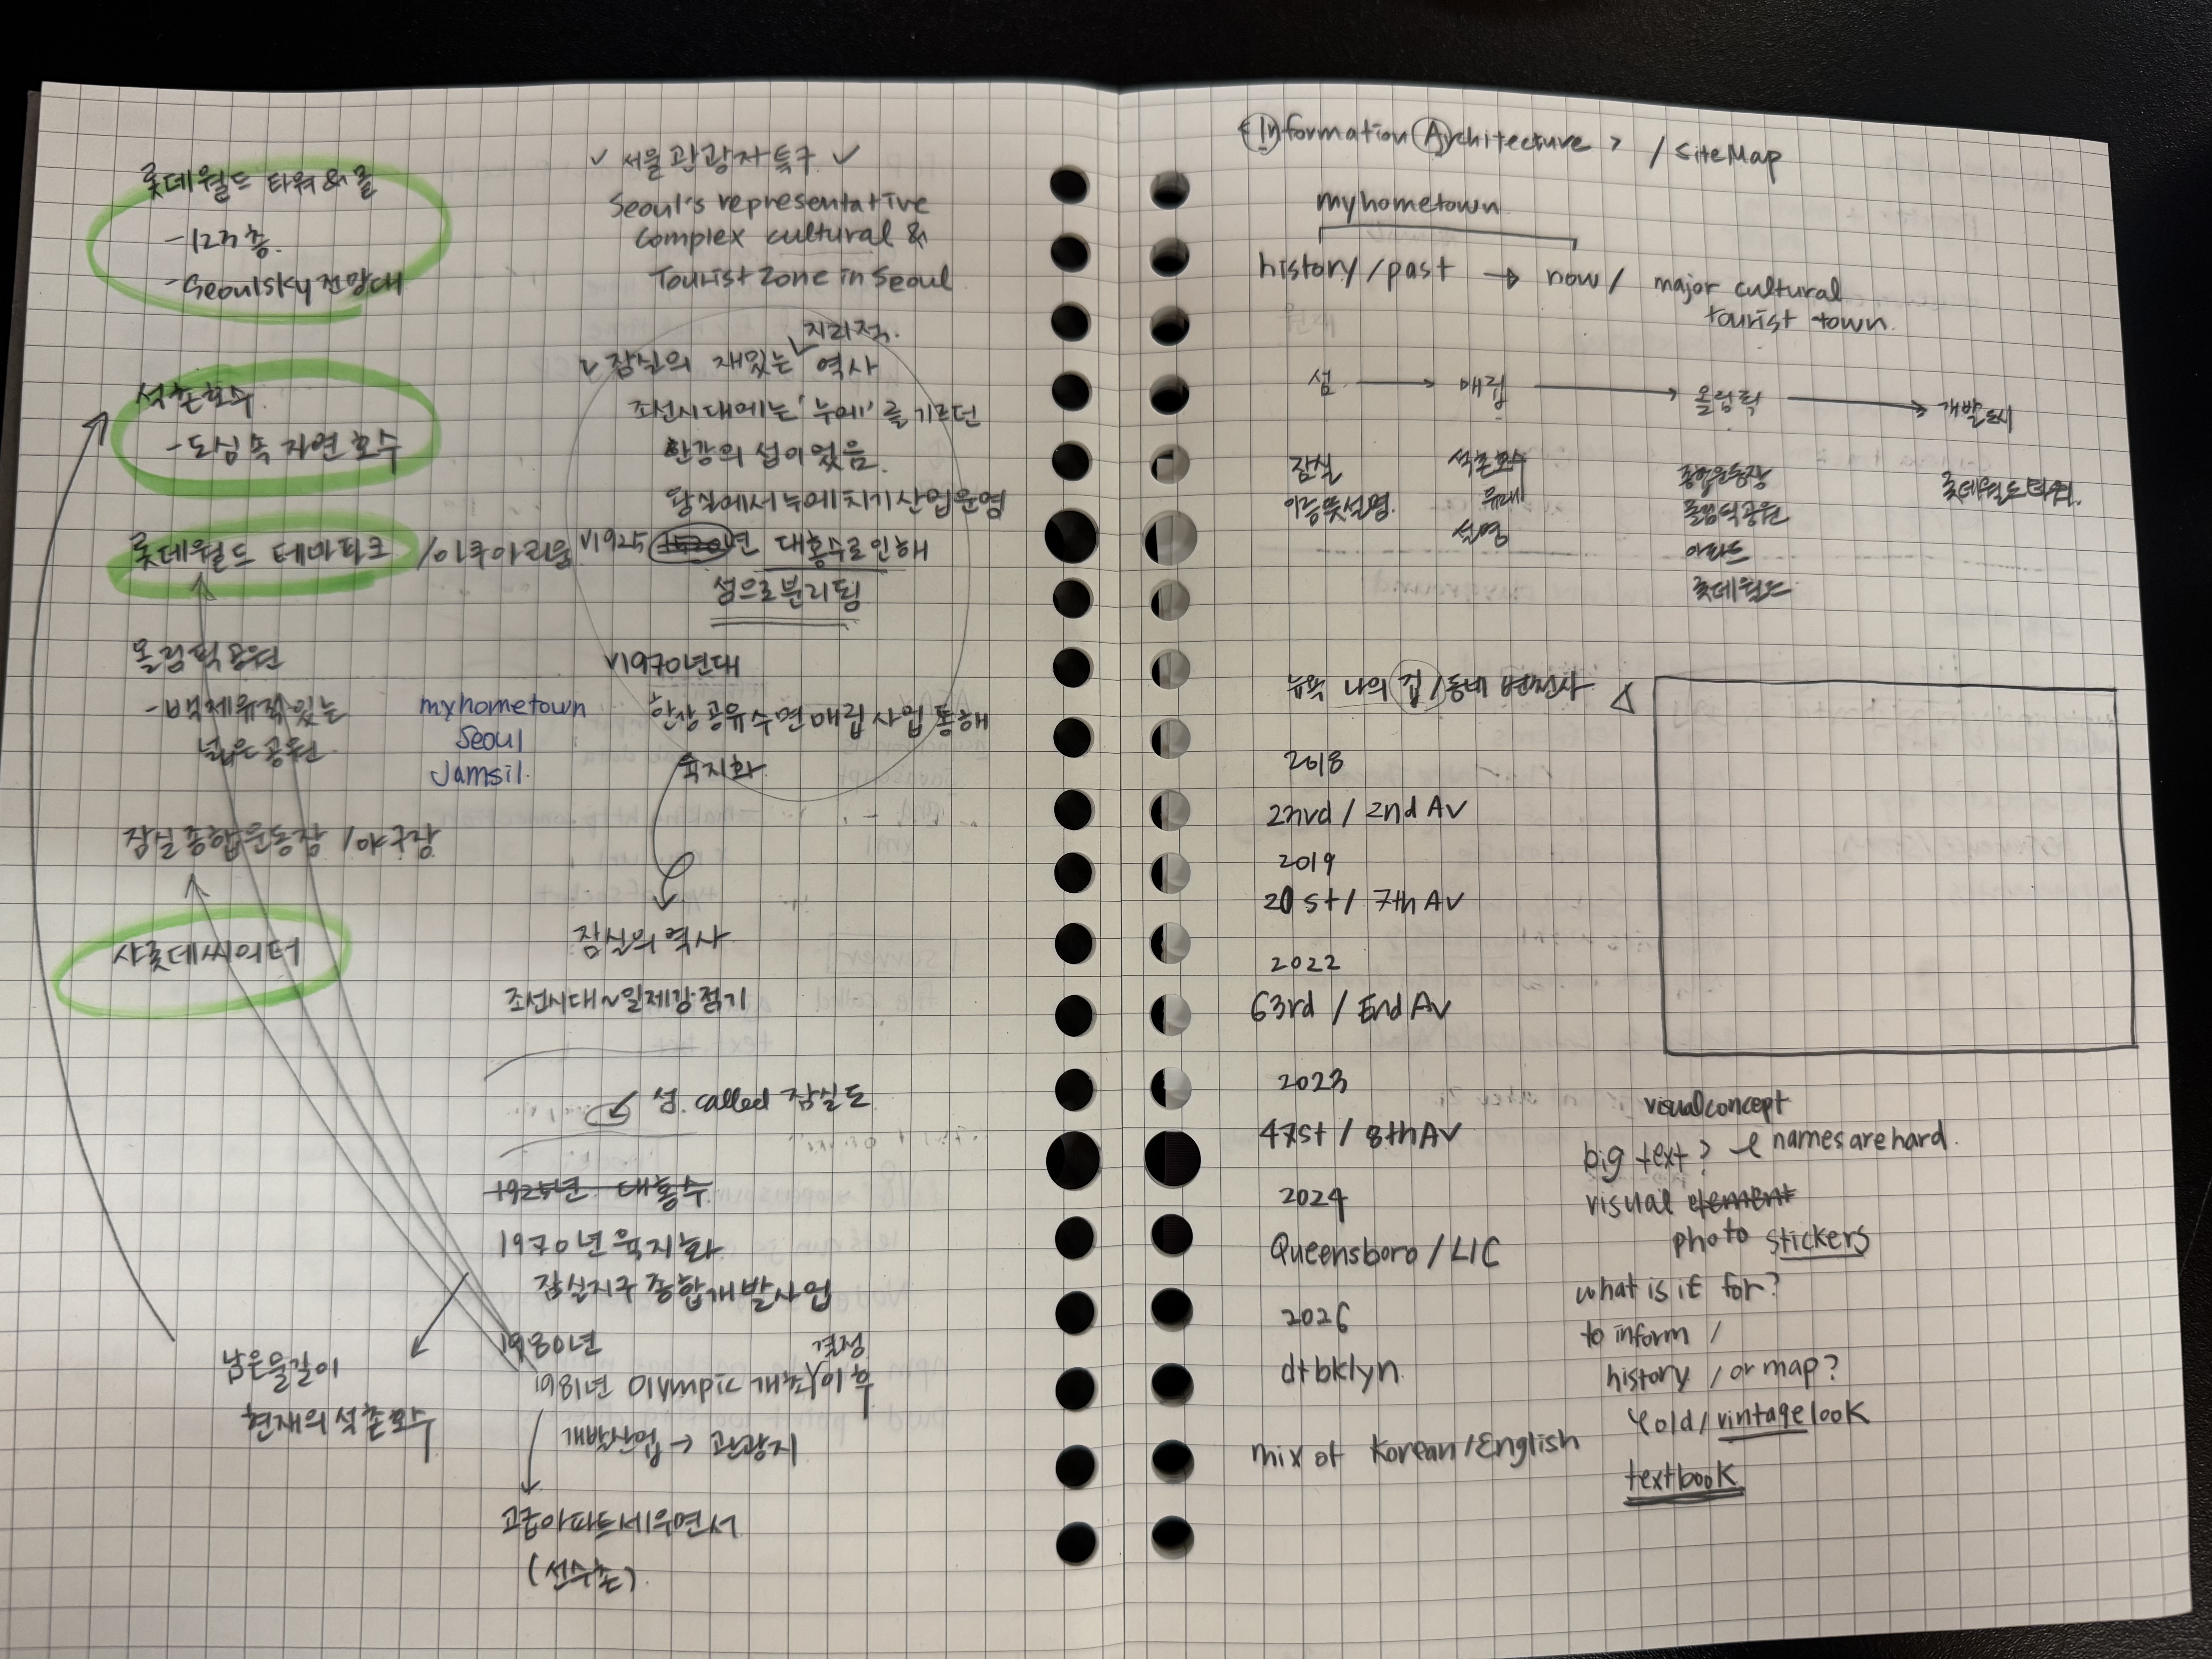 롯데월드 타워 & 몰
- 123층.
- Seoulsky 전망대
석촌호수
- 도심 속 자연 호수
롯데월드 테마파크 / 아쿠아리움
올림픽공원
- 백제유적있는
넓은 공원
myhometown
Seoul
Jamsil.
잠실종합운동장 / 야구장
샤롯데씨어터
남은물길이
현재의 석촌호수
✓ 서울 관광자 특구 ✓
Seoul's representative
complex cultural &
Tourist Zone in Seoul
지리적.
✓ 잠실의 재밌는 ✓ 역사
조선시대에는 '누에' 를 기르던
한강의 섬이었음.
왕실에서 누에치기 산업 운영
✓1925 년 대홍수로 인해
섬으로 분리됨
✓1970년대
한강 공유수면 매립 사업 통해
육지화
잠실의 역사
조선시대~일제강점기
섬. called 잠실도
1925년 대홍수
1970년 육지화
잠실지구 종합개발사업
1980년
결정
1981년 Olympic 개최 이후
개발산업 → 관광지
고급아파트 세우면서
(선수촌)
<Information Architecture> / siteMap
myhometown
history / past → now / major cultural
tourist town.
섬 → 매립 → 올림픽 → 개발도시
잠실
이름뜻설명.
석촌호수
유래
설명
종합운동장
올림픽공원
아파트
롯데월드
롯데월드타워.
뉴욕 나의 집 / 동네 변천사
2018
23rd / 2nd Av
2019
20st / 7th Av
2022
63rd / End Av
2023
47st / 8th Av
2024
Queensboro / LIC
2026
dtbklyn
mix of Korean/English
visual concept
big text? names are hard.
visual element
photo stickers
what is it for?
to inform /
history / or map?
old / vintage look
textbook